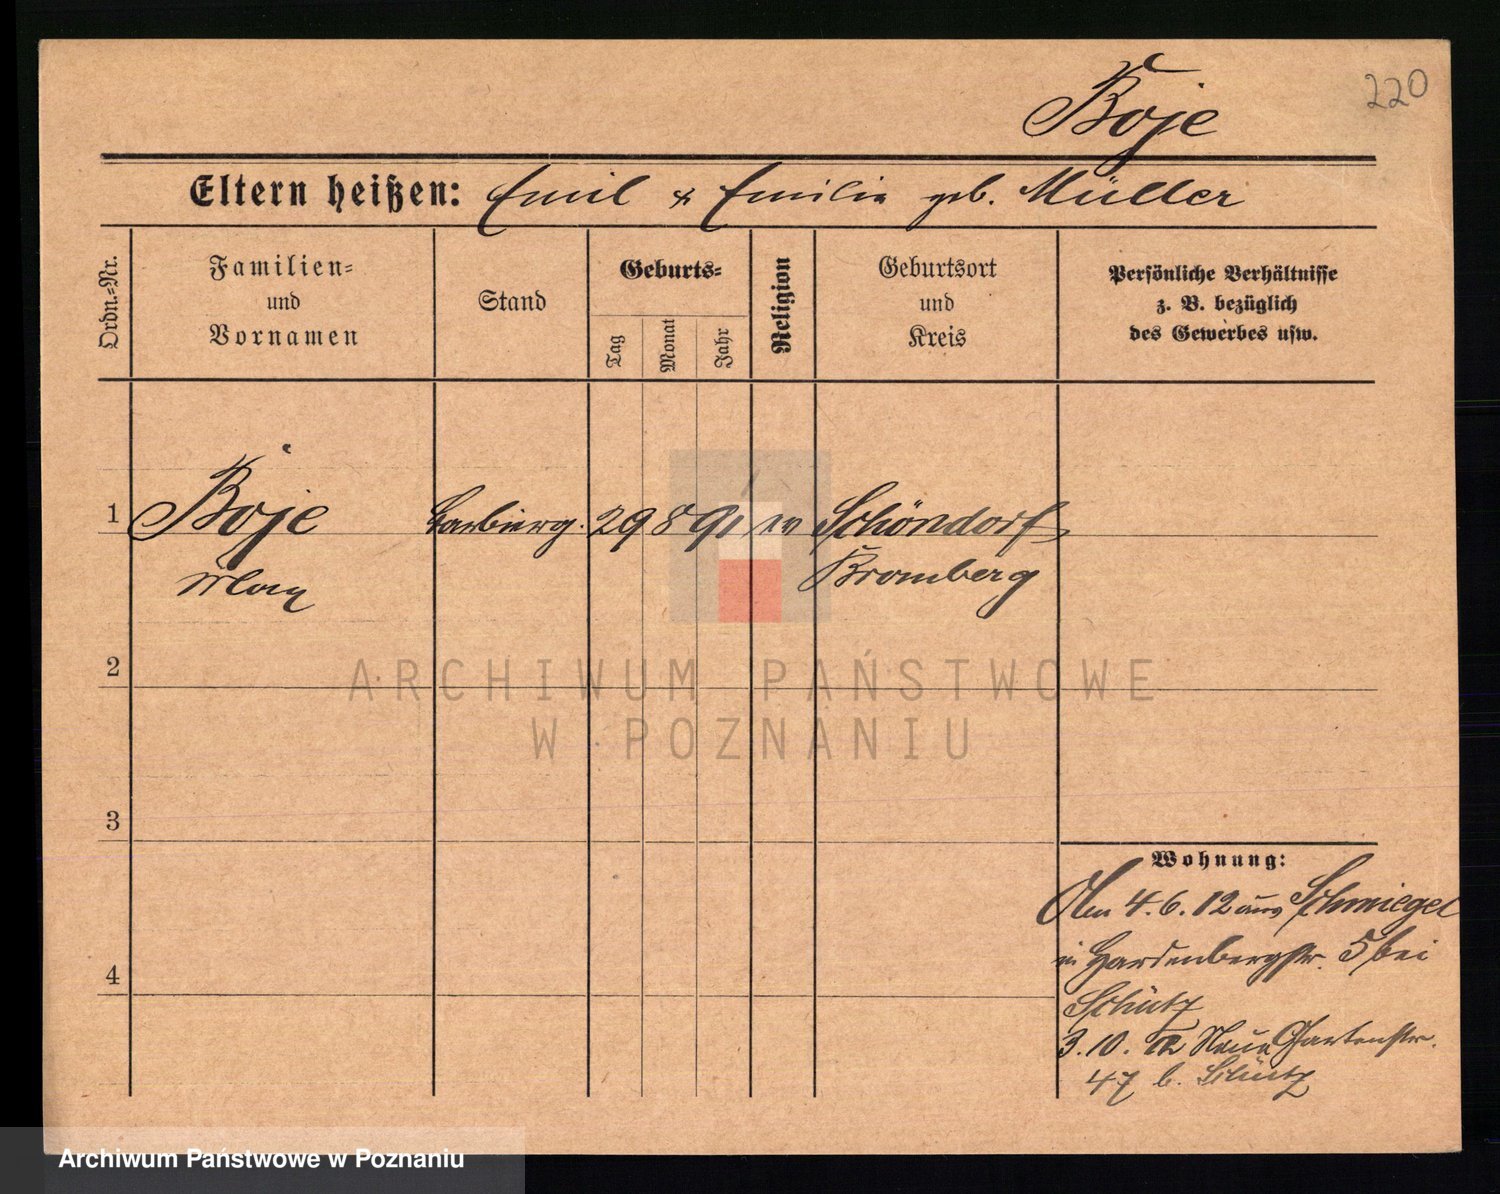 220
Boje
Eltern heißen: Emil & Emilie geb. Müller
Ordn.-Nr.
Familien-
und
Vornamen
Stand
Geburts-
Tag
Monat
Jahr
Religion
Geburtsort
und
Kreis
Persönliche Verhältnisse
z. B. bezüglich
des Gewerbes usw.
1 Boje Barbierg. 29 8 91 ev Schöndorf
Max Bromberg
2
3
4
Wohnung:
4.6.12 aus Schmiegel
in Hardenbergstr. 5 bei
Schütz
3.10. 12 Neue Gartenstr.
47 b. Schütz
ARCHIWUM PAŃSTWOWE
W POZNANIU
Archiwum Państwowe w Poznaniu